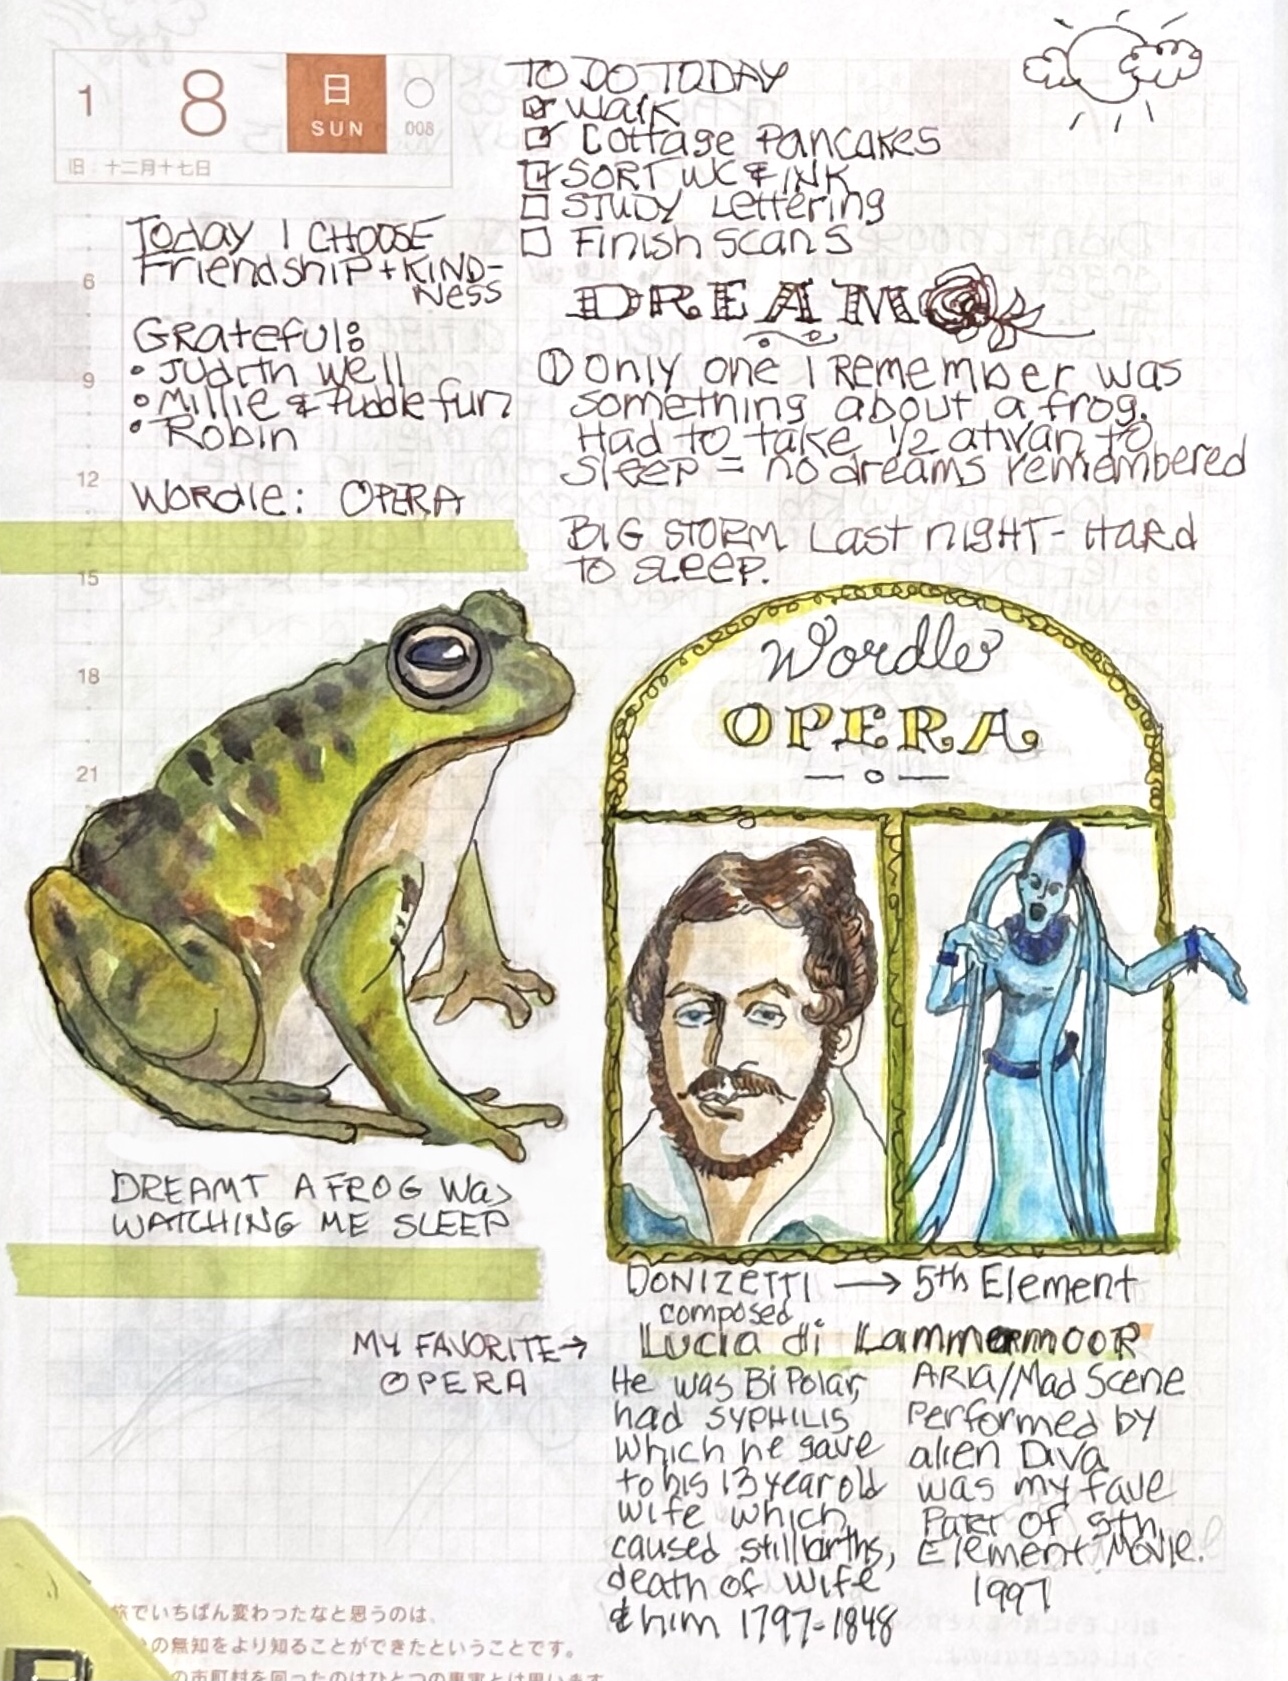 1 8 日 SUN 008
旧：十二月十七日
TO DO TODAY
☑ Walk
☑ Cottage Pancakes
☑ SORT WC & INK
☐ STUDY Lettering
☐ Finish Scans
Today I CHOOSE
Friendship + KIND-
NESS
Grateful:
• Judith well
• Millie & Puddle fun
• Robin
Wordle: OPERA
6
9
12
15
18
21
DREAM
① Only one I Remember was
something about a frog.
Had to take 1/2 ativan to
sleep = no dreams remembered
BIG STORM Last NIGHT - Hard
to sleep.
Wordle
OPERA
DREAMT A FROG WAS
WATCHING ME SLEEP
DONIZETTI → 5th Element
composed
MY FAVORITE →
OPERA
Lucia di Lammermoor
He was BiPolar,
had SYPHILIS
which he gave
to his 13 year old
wife which
caused stillbirths,
death of wife
& him 1797-1848
ARIA/Mad Scene
Performed by
alien Diva
was my fave
Part of 5th
Element Movie.
1997
旅でいちばん変わったなと思うのは、
の無知をより知ることができたということです。
の市町村を回ったのはひとつの事実とは思います